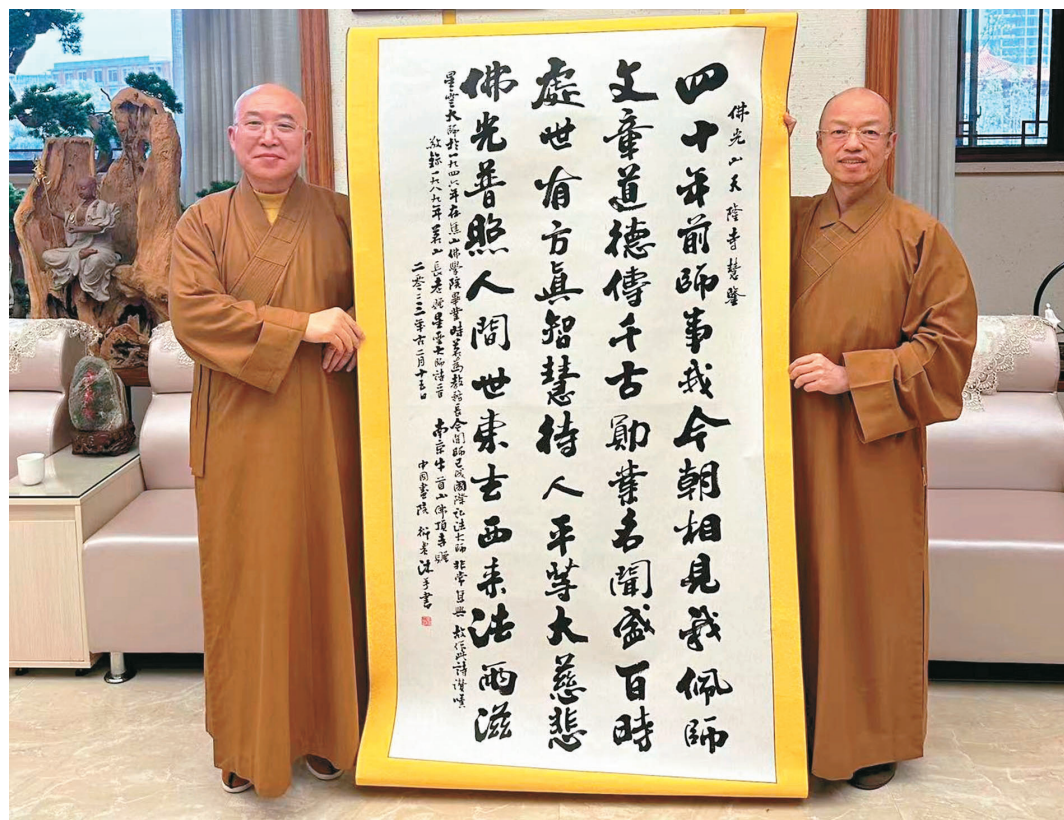 佛光山天隆寺慧鑒
四十年前師事我今朝相見我佩師
文章道德傳千古勛業名聞盛百時
處世有方真智慧待人平等大慈悲
佛光普照人間世東去西來法雨滋
星雲大師於一九四六年在焦山佛學院畢業時茗為教務長今聞師已成國際弘法大師非常自興故作此詩讚嘆
敬錄一九八九年茗山長老贈星雲大師詩一首 南京牛首山佛頂寺贈
二零二三年六二月十五日 中國書院 沐手書